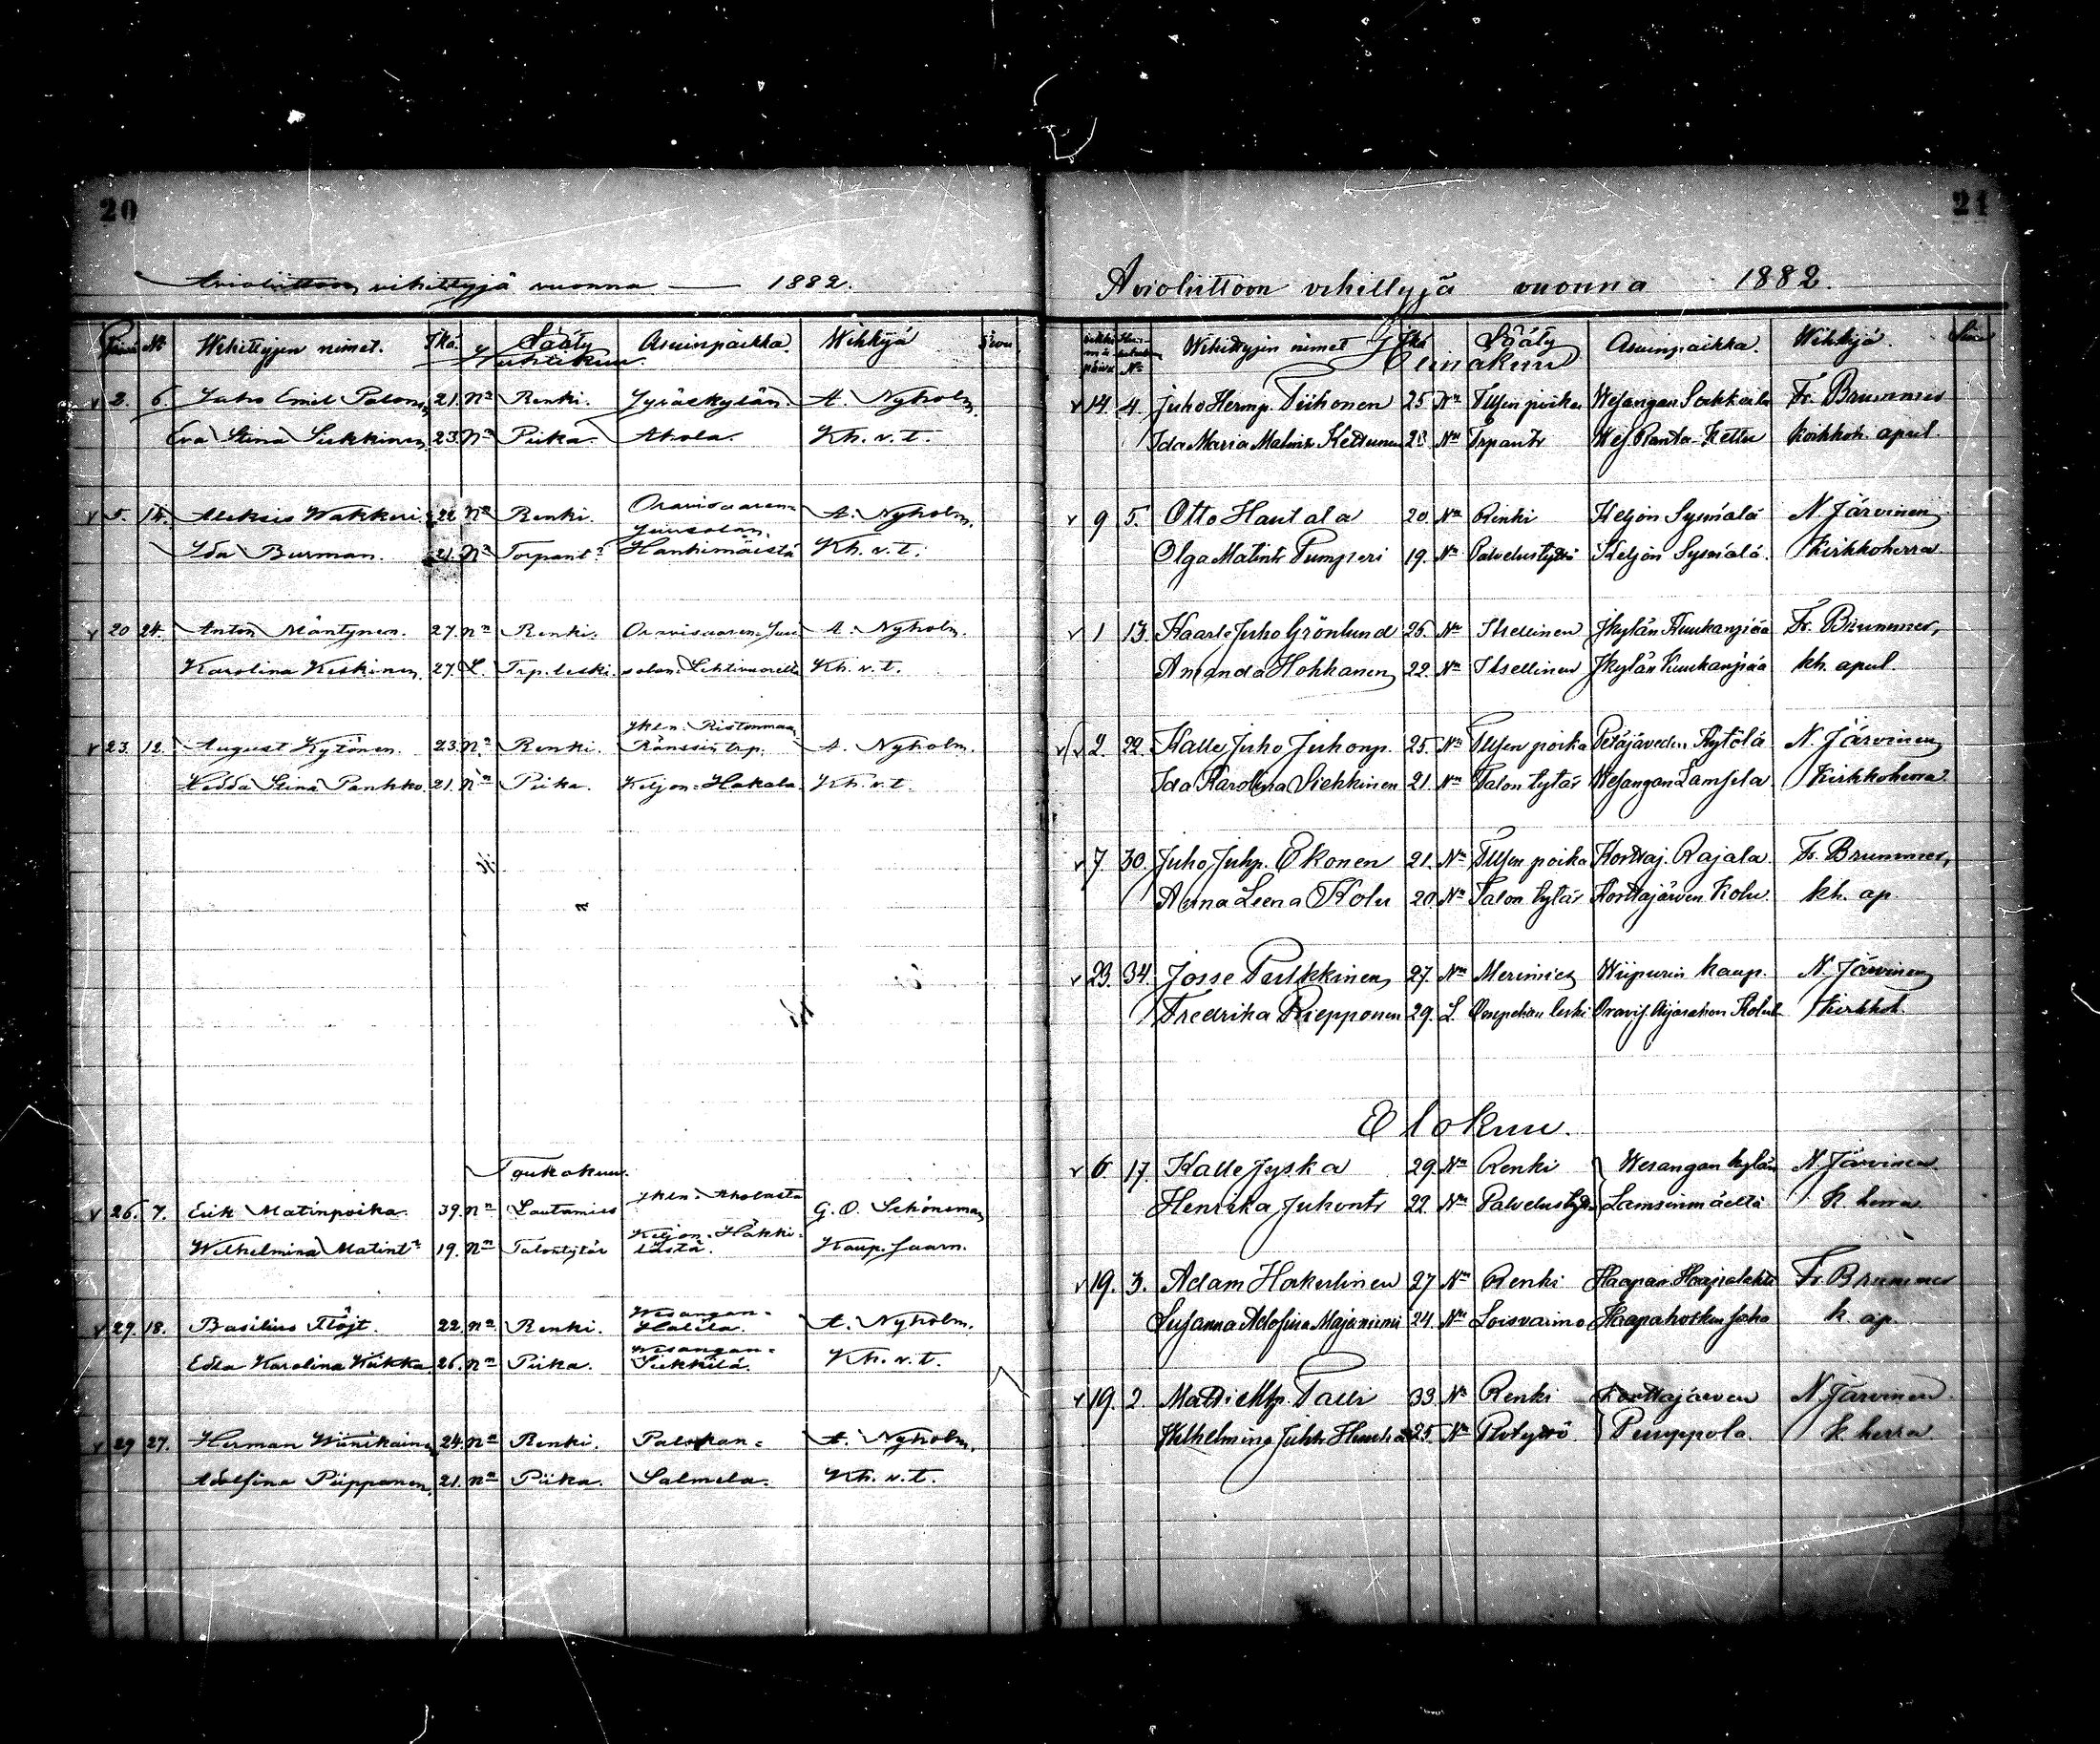 20
Avioliittoon vihittyjä vuonna — 1882.
Päivä № Wihittyjen nimet. Ikä. Sääty Asuinpaikka. Wihkijä Sivu
Huhtikuu.
v 2. 6. Juho Emil Palonen 21. nn Renki. Jyväskylän A. Nyholm.
Eva Stina Sukkinen 23. nn Piika. Ahola. Kh. v. t.
v 5. 14. Aleksis Wakkuri 22 nn Renki. Oravisaaren= Juusolan. A. Nyholm.
Ida Burman. 21. nn Torpant. Hankimäistä Kh. v. t.
v 20 24. Anton Mäntynen. 27. nn Renki. Oravisaaren Juu A. Nyholm.
Karolina Keskinen 27. L. Trp. leski. solan Lehtimäeltä Kh. v. t.
v 23. 12. August Kytönen. 23. nn Renki. Jklän. Ristonmaa Ränssin trp. A. Nyholm.
Hedda Stina Pankko. 21. nn Piika. Keljon= Hakala Kh. v. t.
Toukokuu.
v 26. 7. Erik Matinpoika. 39. nn Lautamies Jklän. Aholasta G. O. Schöneman
Wilhelmina Matint. 19. nn Talontytär Keljon. Häkki= lästä. Kaup. Saarn.
v 29. 18. Basilius Flöjt. 22. nn Renki. Wesangan= Halila. A. Nyholm.
Edla Karolina Kukka 26. nn Piika. Wesangan= Sikkilä. Kh. v. t.
v 29 27. Herman Wiinikainen 24. nn Renki. Palokan= A. Nyholm.
Adolfina Piipponen. 21. nn Piika. Salmela. Kh. v. t.
21
Avioliittoon vihittyjä vuonna 1882.
Wihittyjen nimet Ikä Sääty Asuinpaikka. Wihkijä. Sivu
Heinäkuu
v 14. 4. Juho Hermp. Tiihonen 25 Nn Tllsen poika Wesangan Sakkola Fr. Brummer
Ida Maria Matint Kettunen 23 Nn Trpantr Wes. Ranta-Kettu kirkkoh. apul.
v 9 5. Otto Hautala 20. Nn Renki Keljon Sysmälä N. Järvinen
Olga Matintr Tumperi 19. Nn Palvelustyttö Keljon Sysmälä. Kirkkoherra
v 1 13. Kaarle Juho Grönlund 26. Nn Itsellinen Jkylän Kuukanpää Fr. Brummer,
Amanda Hokkanen 22. Nn Itsellinen Jkylän Kuukanpää kh. apul.
v 2. 22. Kalle Juho Juhonp. 25. Nn Tllsen poika Petäjäveden Kytölä N. Järvinen
Ida Karolina Siekkinen 21. Nn Talon tytär Wesangan Lamsila Kirkkoherra
v 7. 30. Juho Juhp. Ekonen 21. Nn Tllsen poika Korttaj. Rajala. Fr. Brummer,
Anna Leena Kolu 20. Nn Talon tytär Korttajärven Kolu. kh. ap.
v 23. 34. Josse Parkkinen 27. Nn Merimies Wiipurin kaup. N. Järvinen
Fredrika Riepponen 29. L. leski Kirkkoh.
Elokuu.
v 6 17. Kalle Jyska 29. Nn Renki Wesangan kylän N. Järvinen
Henrika Juhontr 22. Nn Palvelustyttö Lamsinmäeltä K. herra
v 19. 3. Adam Hakulinen 27 Nn Renki Haapan Haapalahti Fr. Brummer
Susanna Adolfina Majaniemi 24. Nn Loisvaimo Haapakosken saha k. ap
v 19. 2. Matti Mp. Talli 33 Nn Renki Korttajärven N. Järvinen
Wilhelmina Juhtr 25. Nn Plvtyttö Pumppola. k. herra